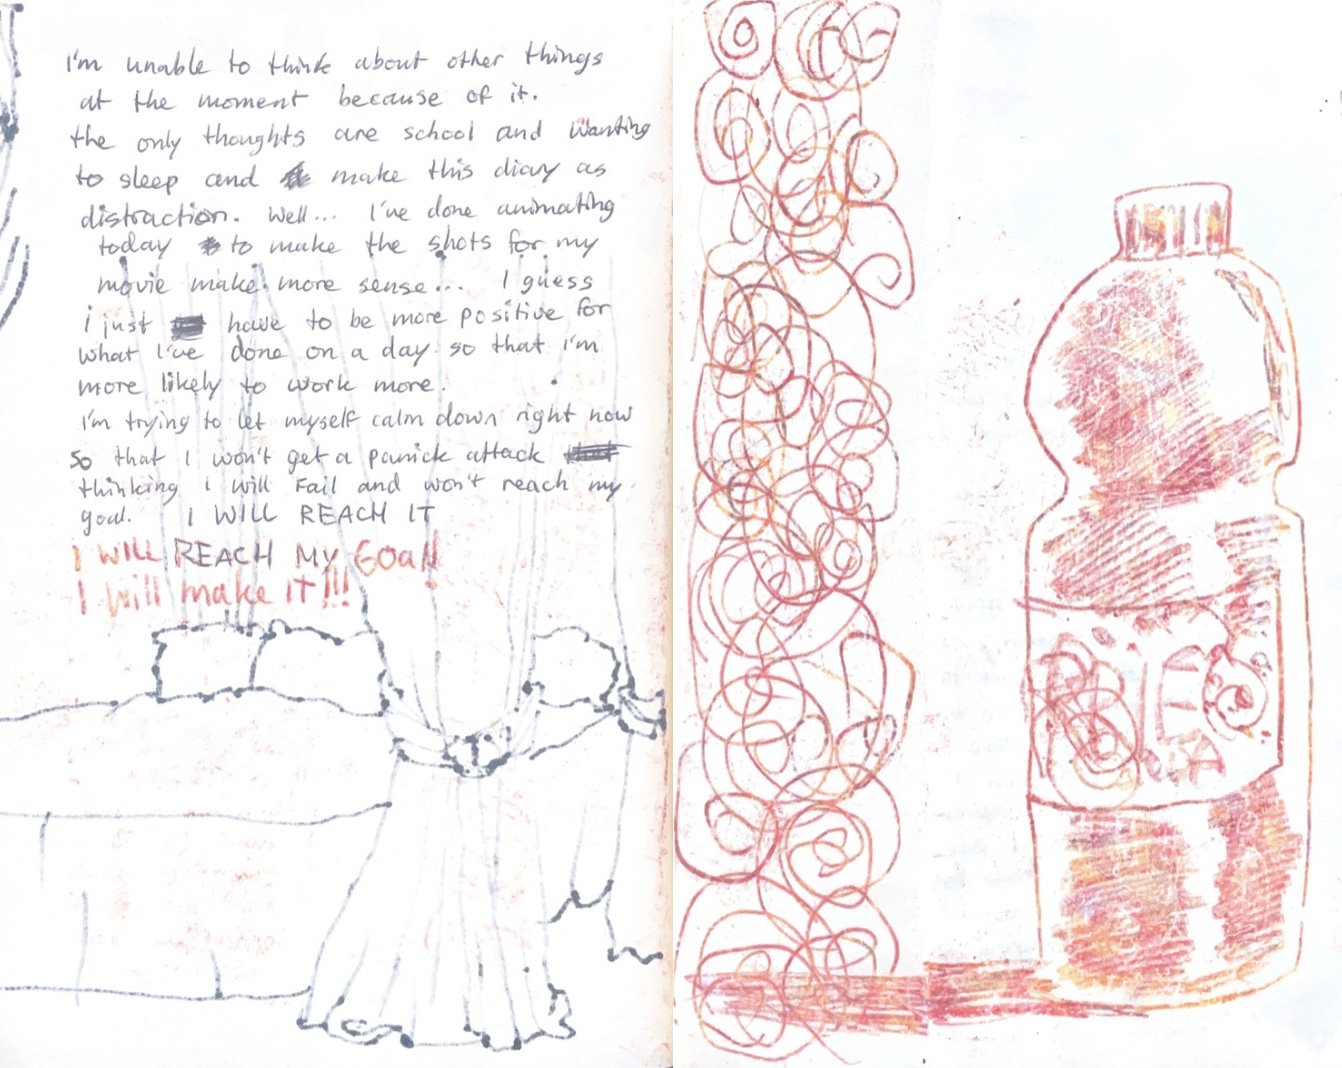 I'm unable to think about other things
at the moment because of it.
the only thoughts are school and wanting
to sleep and make this diary as
distraction. Well... I've done animating
today to make the shots for my
movie make more sense... I guess
i just have to be more positive for
what I've done on a day so that i'm
more likely to work more.
i'm trying to let myself calm down right now
so that I won't get a panick attack
thinking i will Fail and won't reach my
goal. I WILL REACH IT
I WILL REACH MY GOal!
I will make IT!!!